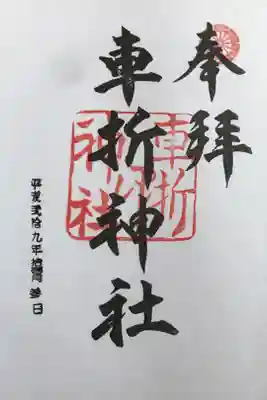 奉拝
車折神社
車折
神社
平成弐拾九年拾弐月参日